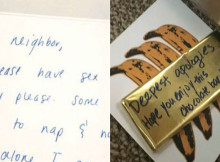 neighbor,
ease have sex
y please. Some
to nap & no
alone I a
Deepest apologies
Hope you enjoy this
chocolate bar